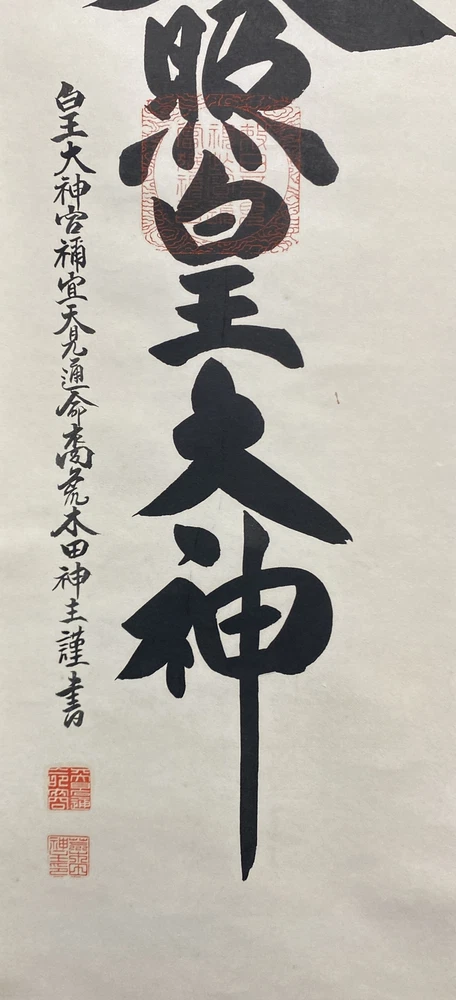 照皇大神
皇大神宮禰宜天見通命裔荒木田神主謹書